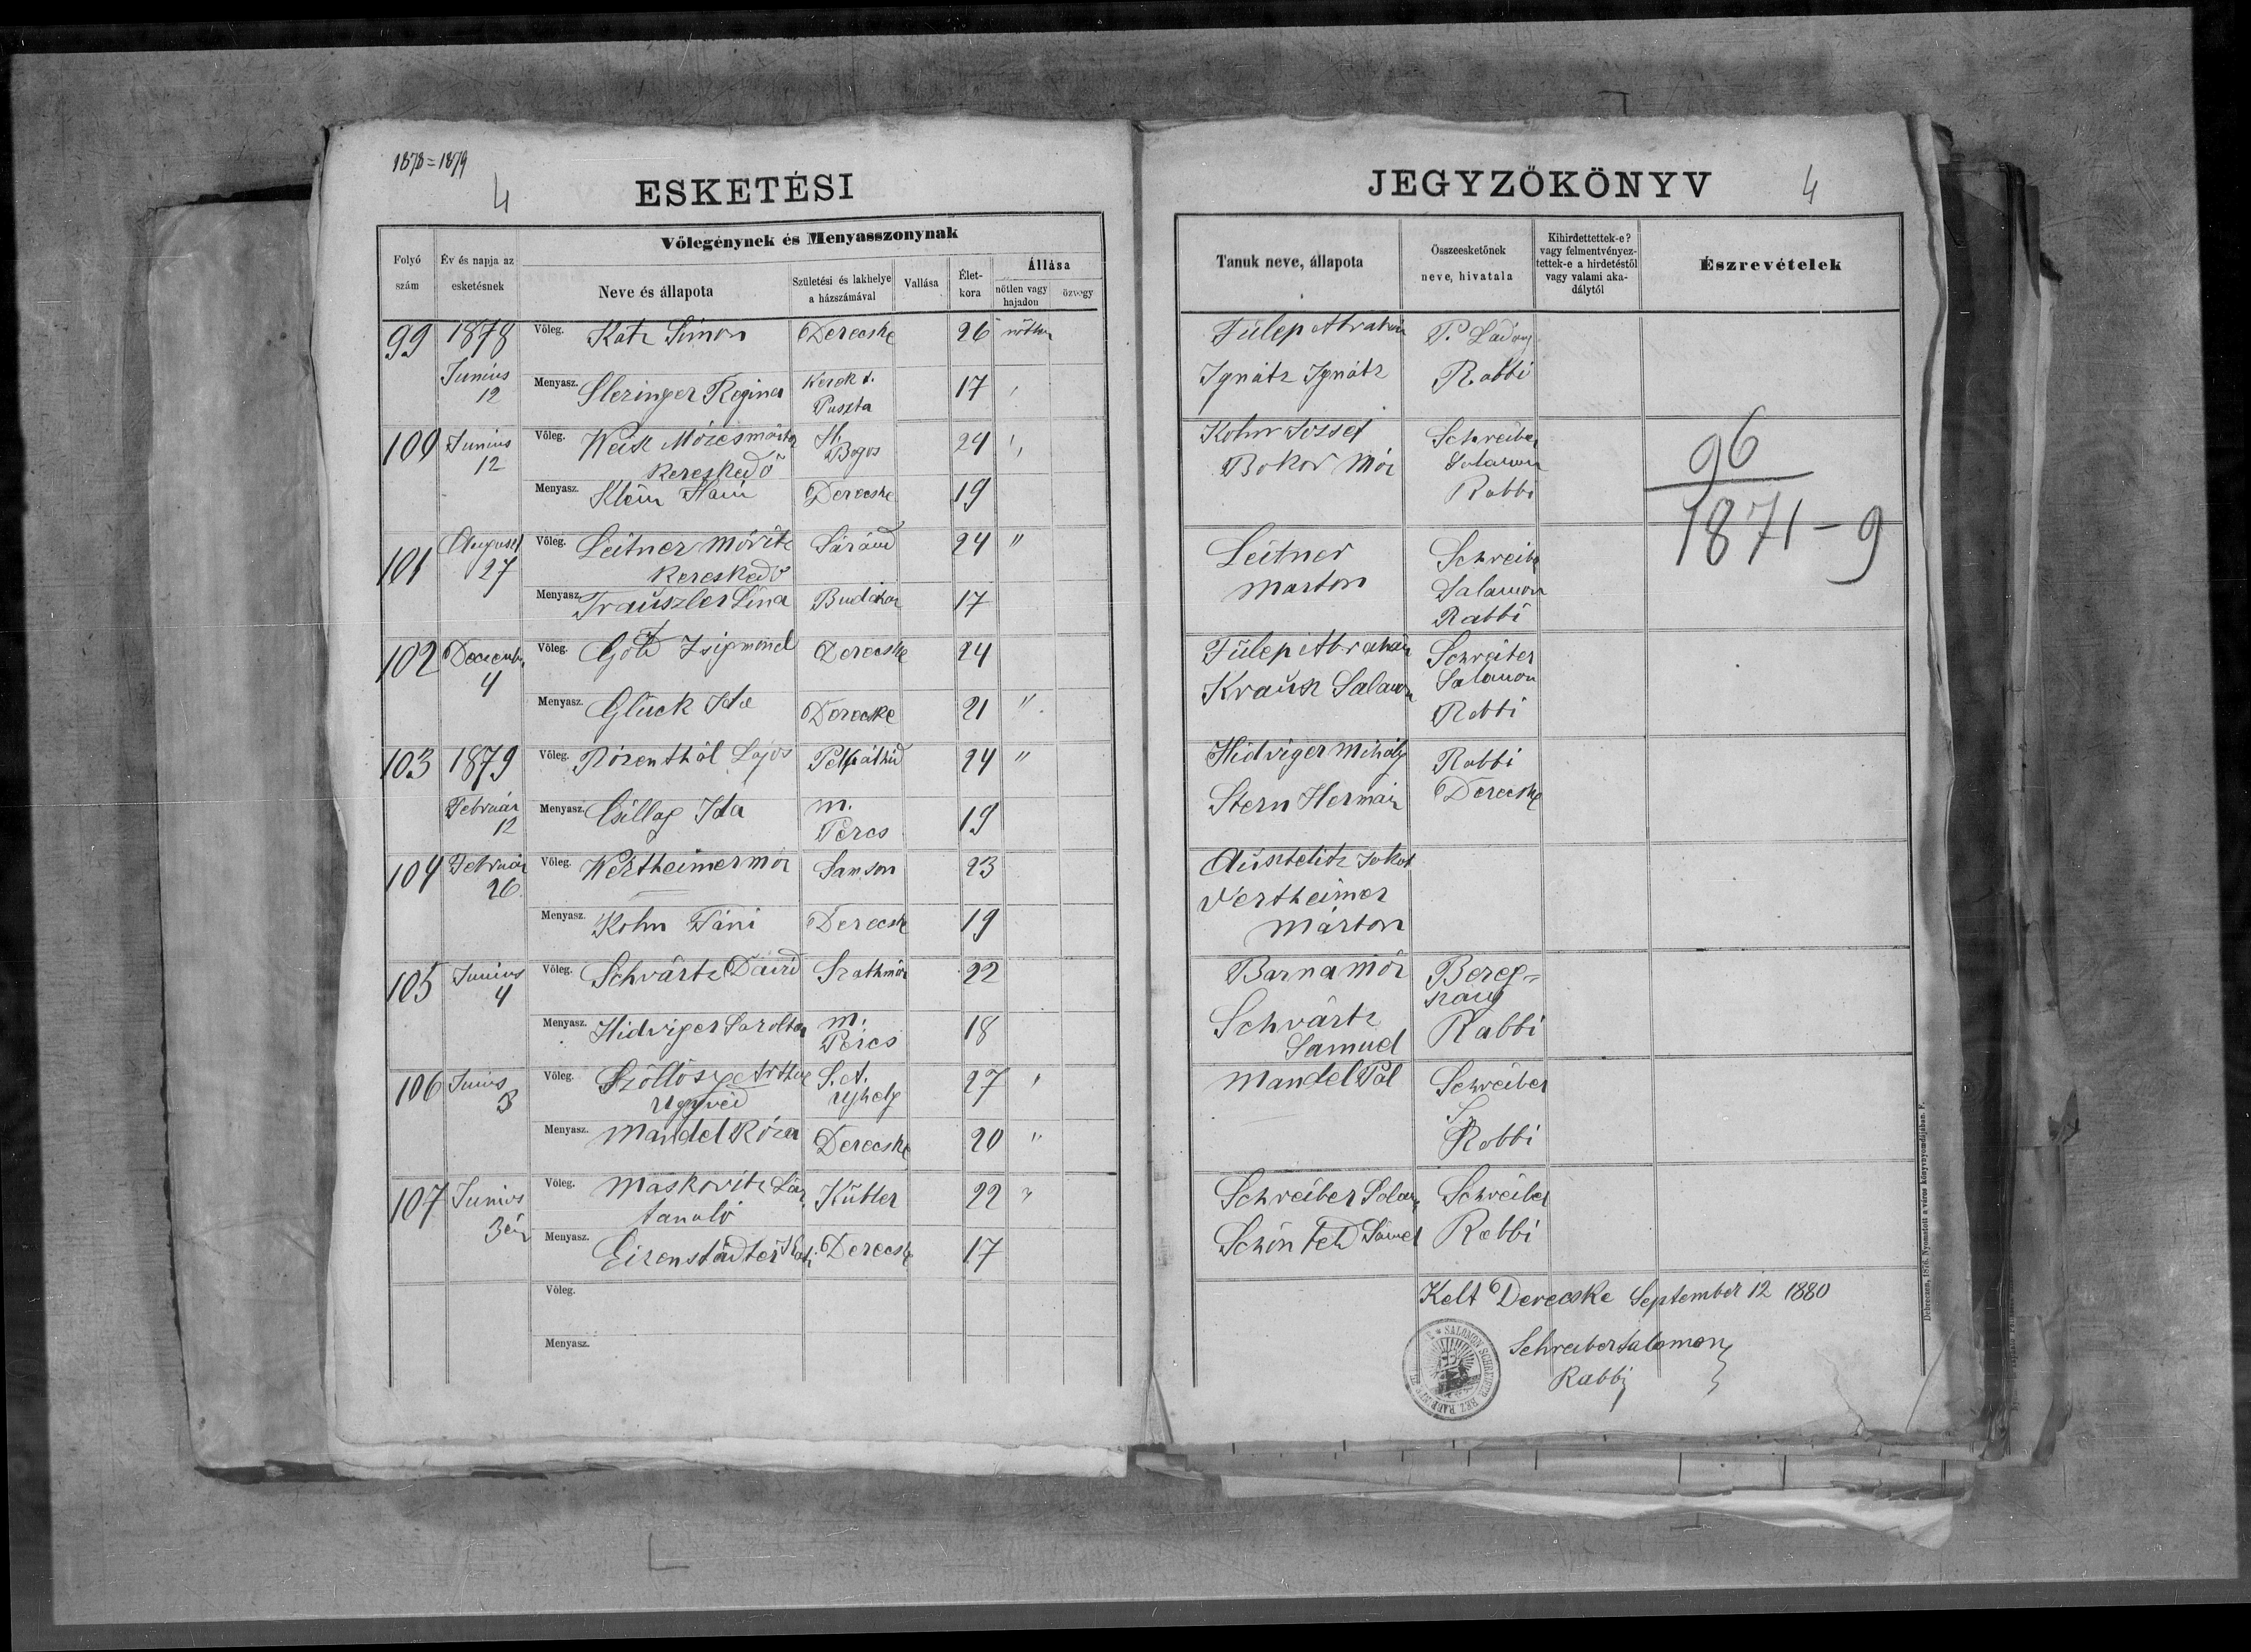 1878=1879
4
ESKETÉSI
Vőlegénynek és Menyasszonynak
Folyó szám
Év és napja az esketésnek
Neve és állapota
Születési és lakhelye a házszámával
Vallása
Élet-kora
Állása
nőtlen vagy hajadon
özvegy
99 1878 Vőleg. Katz Simon Derecske 26 nőtlen
Junius 12 Menyasz. Slezinger Regina Puszta 17
100 Junius 12 Vőleg. Bogos 24
Kereskedő
Menyasz. Klein Derecske 19
101 August 27 Vőleg. Leitner Móritz Sáránd 24 "
Kereskedő
Menyasz. Trauszler Lina 17
102 Decemb. 4 Vőleg. Zsigmond Derecske 24
Menyasz. Glück Ida Derecske 21 "
103 1879 Vőleg. Rózenthál Lajos 24 "
Február 12 Menyasz. Csillag Ida m. Pércs 19
104 Február 26 Vőleg. Wertheimer Mór Samson 23
Menyasz. Kohn Fáni Derecske 19
105 Junius 4 Vőleg. Schvártz Dávid Szathmár 22
Menyasz. Hidvéger Sarolta m. Pércs 18
106 Junius 3 Vőleg. S. A. Ujhely 27 "
Ügyvéd
Menyasz. Mandel Róza Derecske 20 "
107 Junius Vőleg. Maskovitz 22 "
tanuló
Menyasz. Eizenstädter Derecske 17
Vőleg.
Menyasz.
JEGYZŐKÖNYV
4
Tanuk neve, állapota
Összeesketőnek
neve, hivatala
Kihirdettettek-e?
vagy felmentvényez-
tettek-e a hirdetéstől
vagy valami aka-
dálytól
Észrevételek
Fülep Abrahám P.
Ignátz Ignátz Rabbi
Kohn József Schreiber
Bokor Mór Salamon
Rabbi
96
1871-9
Leitner Schreiber
Marton Salamon
Rabbi
Fülep Abrahám Schreiber
Krausz Salamon Salamon
Rabbi
Hidvéger Mihály Rabbi
Stern Hermán Derecske
Ausztelitz Jakob
Vertheimer
Márton
Barna Mór Bereg-
Schvártz Rabbi
Samuel
Mandel Pál Schreiber
S.
Rabbi
Schreiber Schreiber
Schönfeld Rabbi
Kelt Derecske September 12 1880
Schreiber Salamon
Rabbi
SALOMON SCHREIBER
Debreczen, 1876. Nyomatott a város könyvnyomdájában. F.